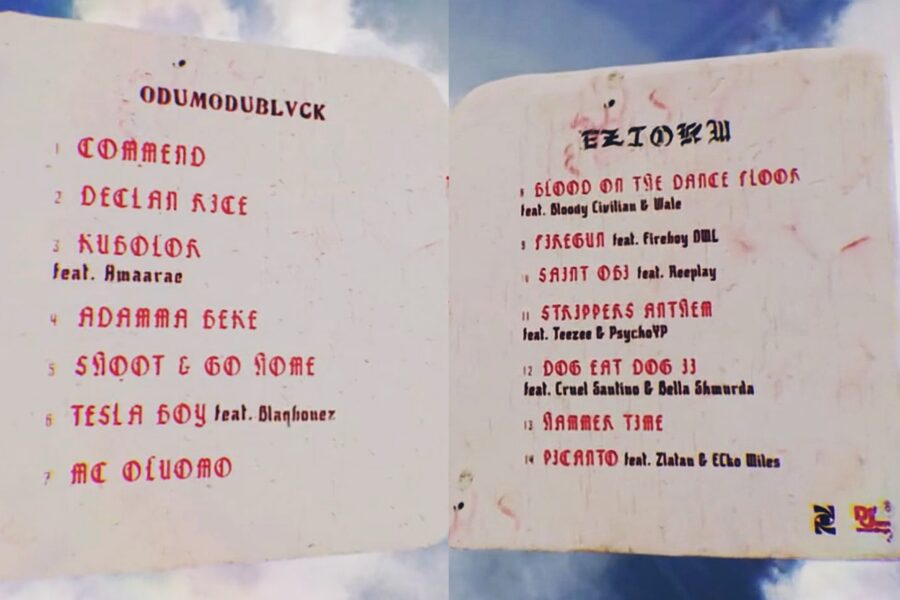 ODUMODUBLVCK
1 COMMEND
2 DECLAN RICE
3 KUBOLOR
feat. Amaarae
4 ADAMMA BEKE
5 SHOOT & GO HOME
6 TESLA BOY feat. Blaqbonez
7 MC OLUOMO
EZIOKWU
8 BLOOD ON THE DANCE FLOOR
feat. Bloody Civilian & Wale
9 FIREGUN feat. Fireboy DML
10 SAINT OBI feat. Reeplay
11 STRIPPERS ANTHEM
feat. Teezee & PsychoYP
12 DOG EAT DOG II
feat. Cruel Santino & Bella Shmurda
13 HAMMER TIME
14 PICANTO feat. Zlatan & ECko Miles